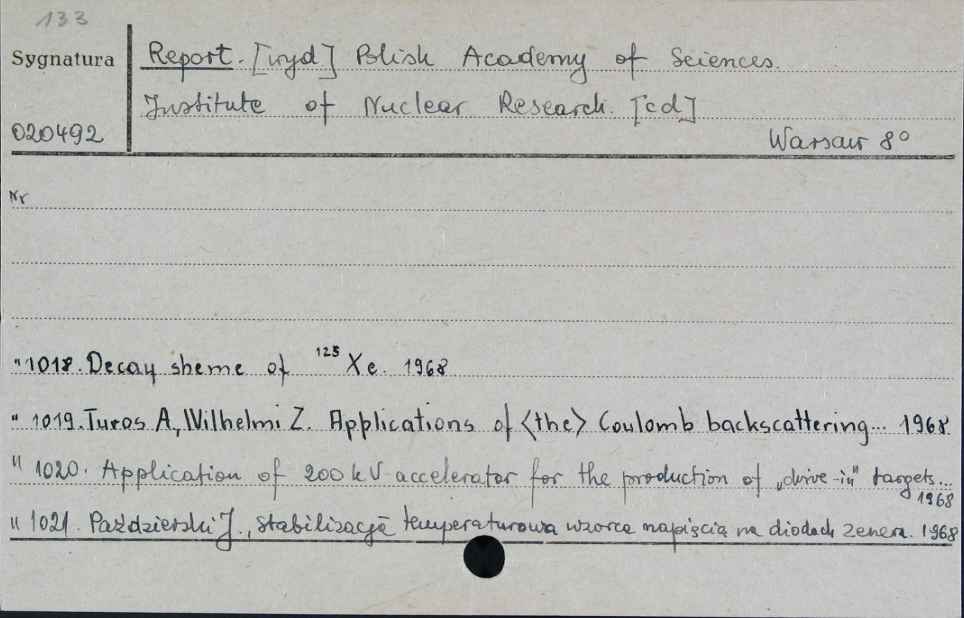 133
Sygnatura
Report. [wyd] Polish Academy of Sciences.
Institute of Nuclear Research. [cd]
020492
Warsaw 8°
Nr
" 1018. Decay sheme of ¹²⁵Xe. 1968
" 1019. Turos A., Wilhelmi Z. Applications of <the> Coulomb backscattering... 1968
" 1020. Application of 200 kV accelerator for the production of „drive-in" targets... 1968
" 1021. Paździerski J., Stabilizacja temperaturowa wzorca napięcia na diodach zenera. 1968